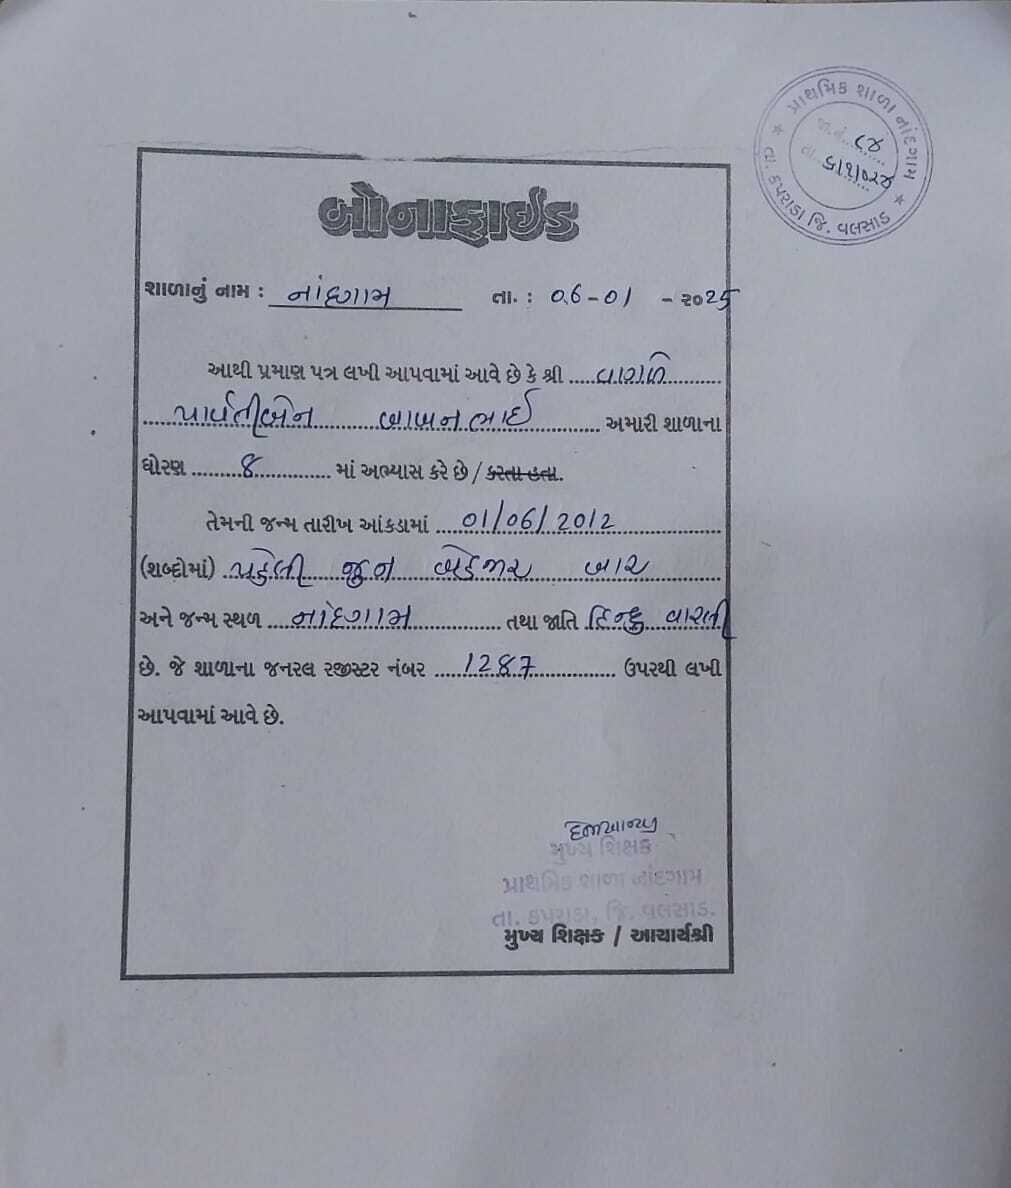 પ્રાથમિક શાળા નાંદગામ
તા. કપરાડા જિ. વલસાડ
જા.નં. ૮૪
તા.
બોનાફાઈડ
શાળાનું નામ : નાંદગામ તા. : 06-01 - ૨૦25
આથી પ્રમાણ પત્ર લખી આપવામાં આવે છે કે શ્રી વારળિ
પાર્વતીબેન બાબનભાઈ અમારી શાળાના
ધોરણ 8 માં અભ્યાસ કરે છે / કરતા હતા.
તેમની જન્મ તારીખ આંકડામાં 01/06/2012
(શબ્દોમાં) પહેલી જૂન બેહજાર બાર
અને જન્મ સ્થળ નાંદગામ તથા જાતિ હિન્દુ વારલી
છે. જે શાળાના જનરલ રજીસ્ટર નંબર 1287 ઉપરથી લખી
આપવામાં આવે છે.
મુખ્ય શિક્ષક
પ્રાથમિક શાળા નાંદગામ
તા. કપરાડા, જિ. વલસાડ.
મુખ્ય શિક્ષક / આચાર્યશ્રી